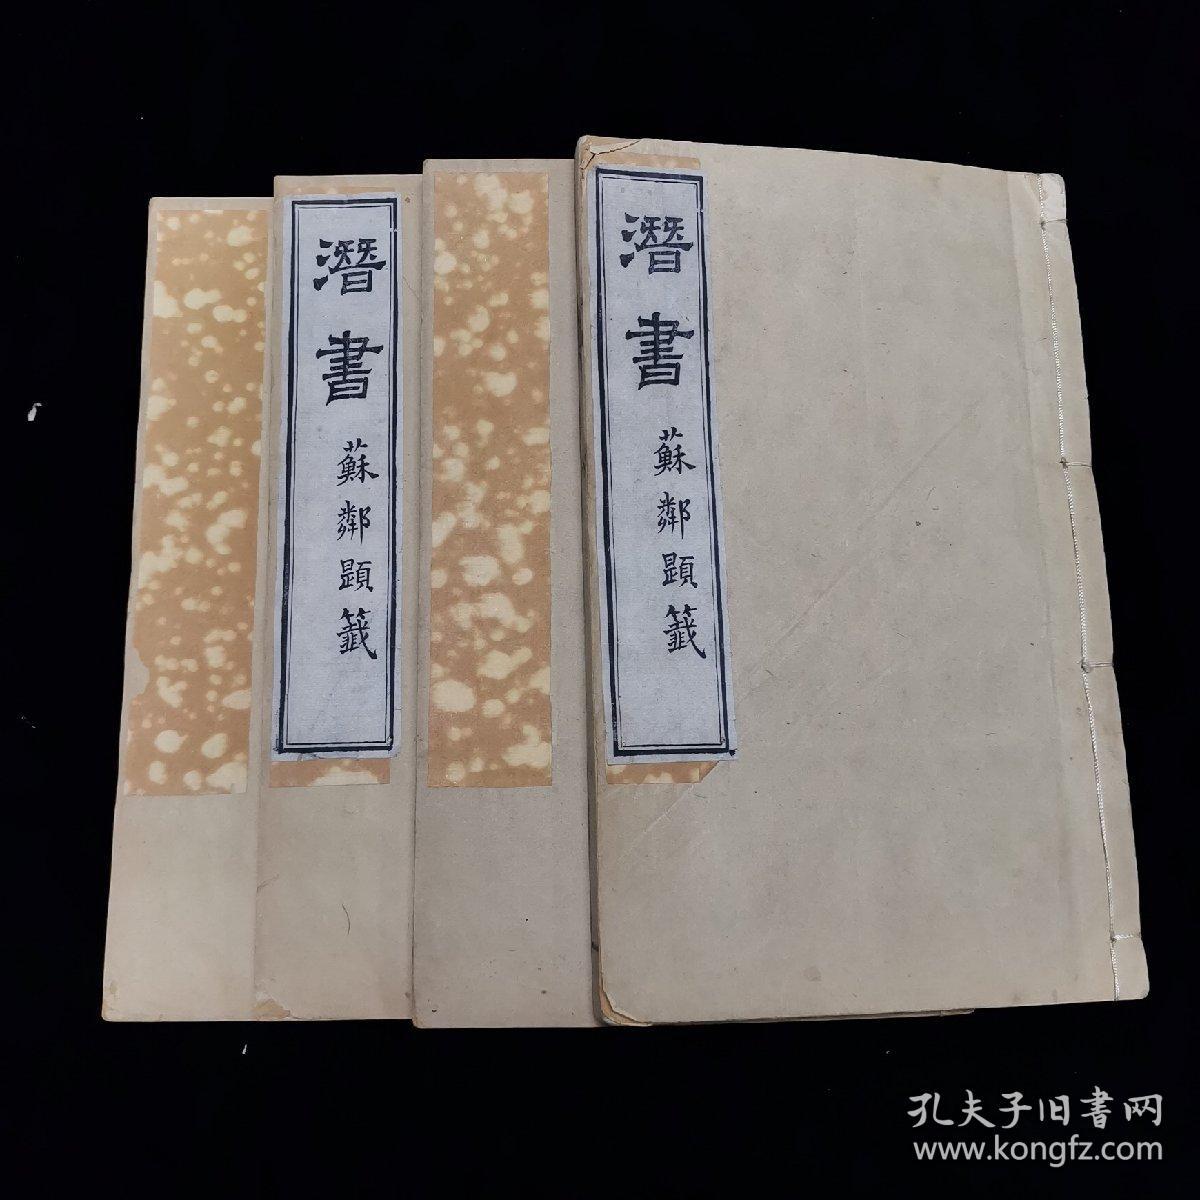 潛書
蘇鄰題籤
潛書
蘇鄰題籤
孔夫子旧書网
www.kongfz.com